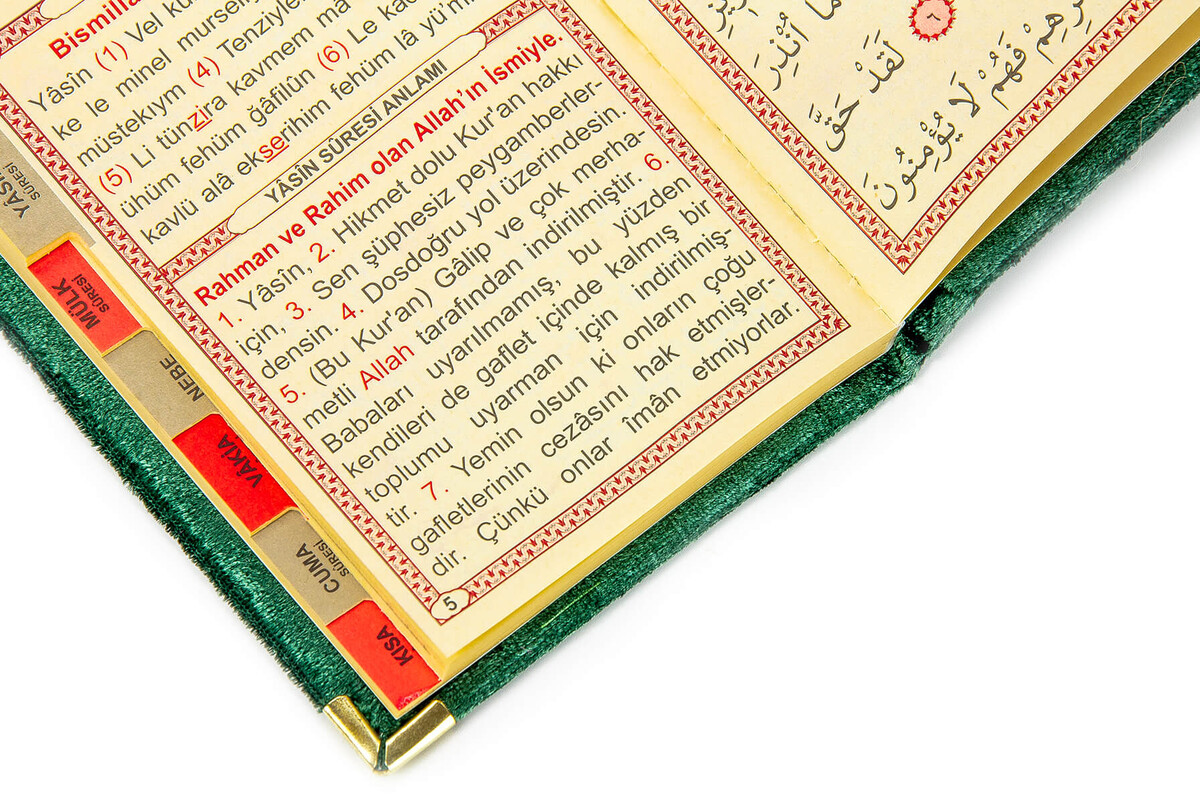 Bismilla
Yâsîn (1) Vel ku
ke le minel mursel
müstekıym (4) Tenziyle
(5) Li tünzira kavmem mâ
ühüm fehüm ğâfilûn (6) Le ka
kavlü alâ ekserihim fehüm lâ yü'mi
YÂSÎN SÛRESİ ANLAMI
Rahman ve Rahim olan Allah'ın İsmiyle.
1. Yâsîn, 2. Hikmet dolu Kur'an hakkı
için, 3. Sen şüphesiz peygamberler-
densin. 4. Dosdoğru yol üzerindesin.
5. (Bu Kur'an) Gâlip ve çok merha-
metli Allah tarafından indirilmiştir. 6.
Babaları uyarılmamış, bu yüzden
kendileri de gaflet içinde kalmış bir
toplumu uyarman için indirilmiş-
tir. 7. Yemin olsun ki onların çoğu
gafletlerinin cezâsını hak etmişler-
dir. Çünkü onlar îmân etmiyorlar.
5
YÂSÎN
SÛRESİ
MÜLK
SÛRESİ
NEBE
VÂKIA
CUMA
SÛRESİ
KISA
مَا أُنْذِرَ
٦
لَقَدْ حَقَّ
فَهُمْ لَا يُؤْمِنُونَ